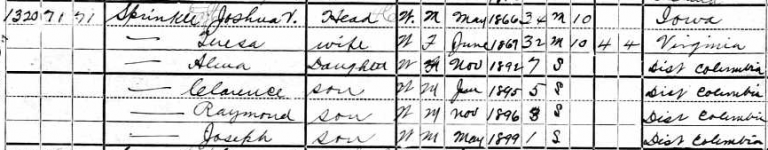 1320 71 71 Sprinkle, Joshua V. Head W. M May 1866 34 M 10 Iowa
— Teresa wife W F June 1867 32 M 10 4 4 Virginia
— Alma Daughter W Nov 1892 7 S Dist Columbia
— Clarence son W M Jan 1895 5 S Dist Columbia
— Raymond son W M Nov 1896 3 S Dist Columbia
— Joseph son W M May 1899 1 S Dist Columbia